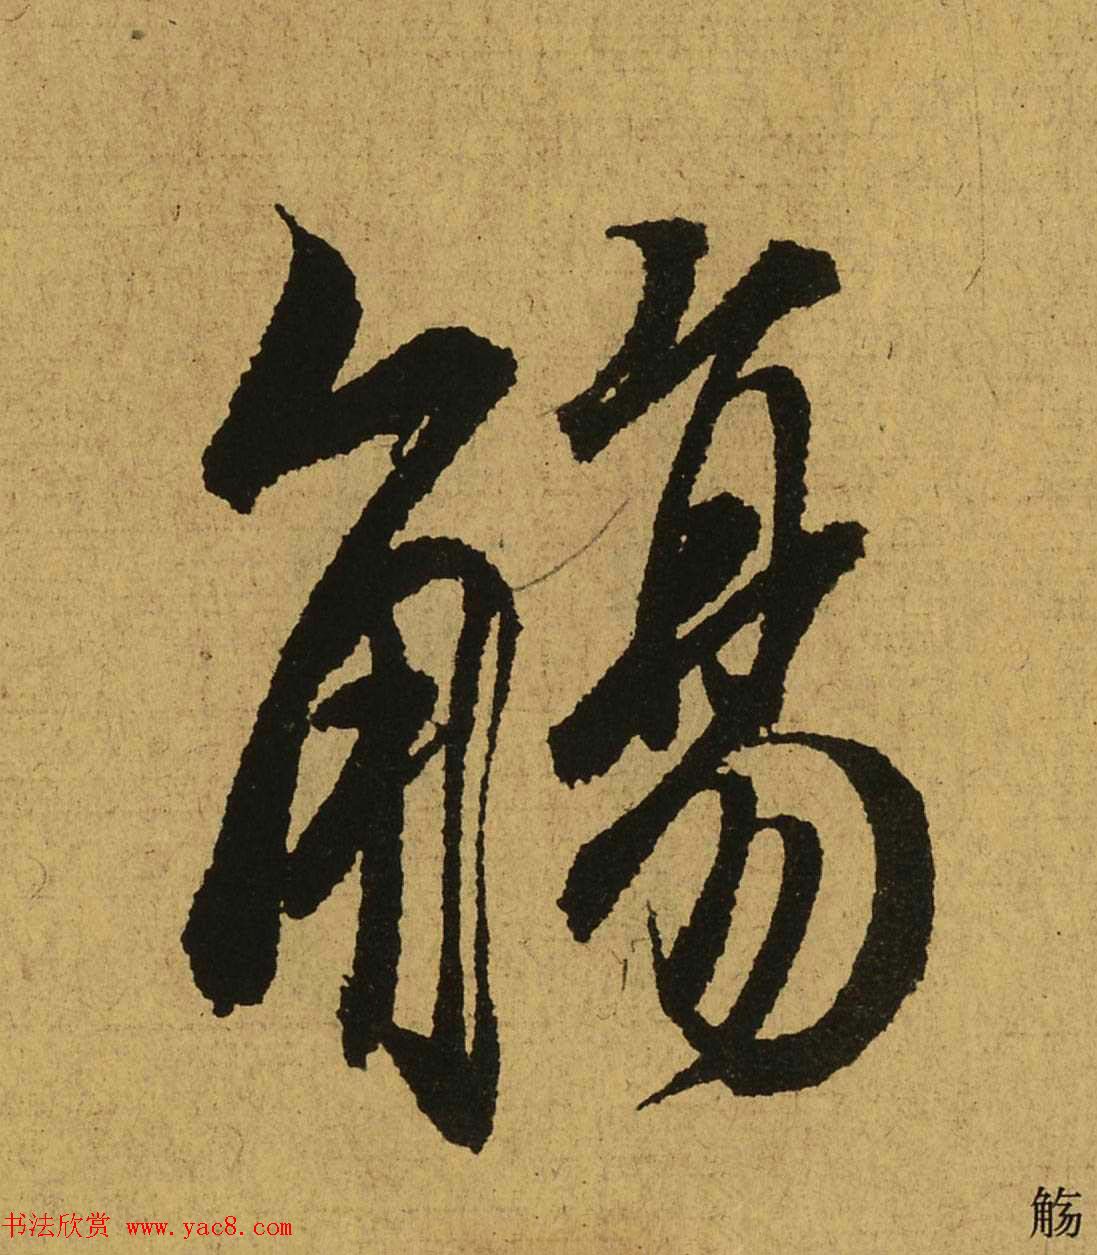 觞
书法欣赏 www.yac8.com
觞